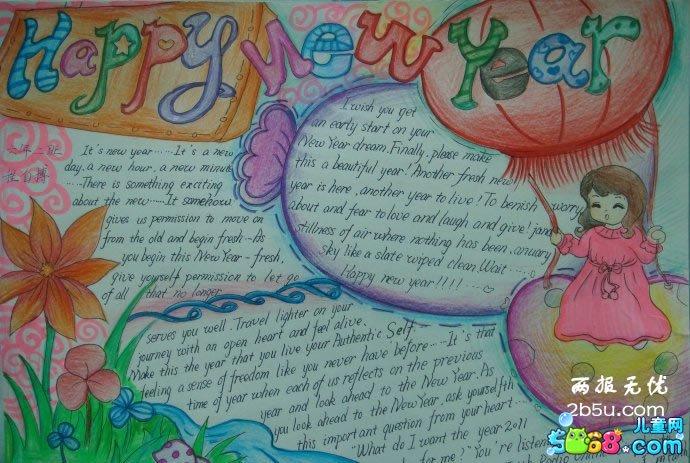 Happy New Year
六年二班
It's new year......It's a new
day. a new hour, a new minute
....There is something exciting
about the new.....It somehow
gives us permission to move on
from the old and begin fresh...As
you begin this New Year - fresh,
give yourself permission to let go
of all that no longer
serves you well. Travel lighter on your
journey with an open heart and feel alive.
Make this the year that you live your Authentic Self.
feeling a sense of freedom like you never have before.....It's that
time of year when each of us reflects on the previous
year and look ahead to the New Year. As
you look ahead to the New Year, ask yourselfth
this important question from your heart....
"What do I want the year 2011
for me!" You're listen
I wish you get
an early start on your
New Year dream. Finally. please make
this a beautiful year! Another fresh new
year is here, another year to live! To benish worry
about and fear to love and laugh and give! jan
stillness of air where nothing has been, anuary
sky like a slate wiped clean. Wait......
Happy new year!!!!...
两报无优
2b5u.com
5068.com
儿童网